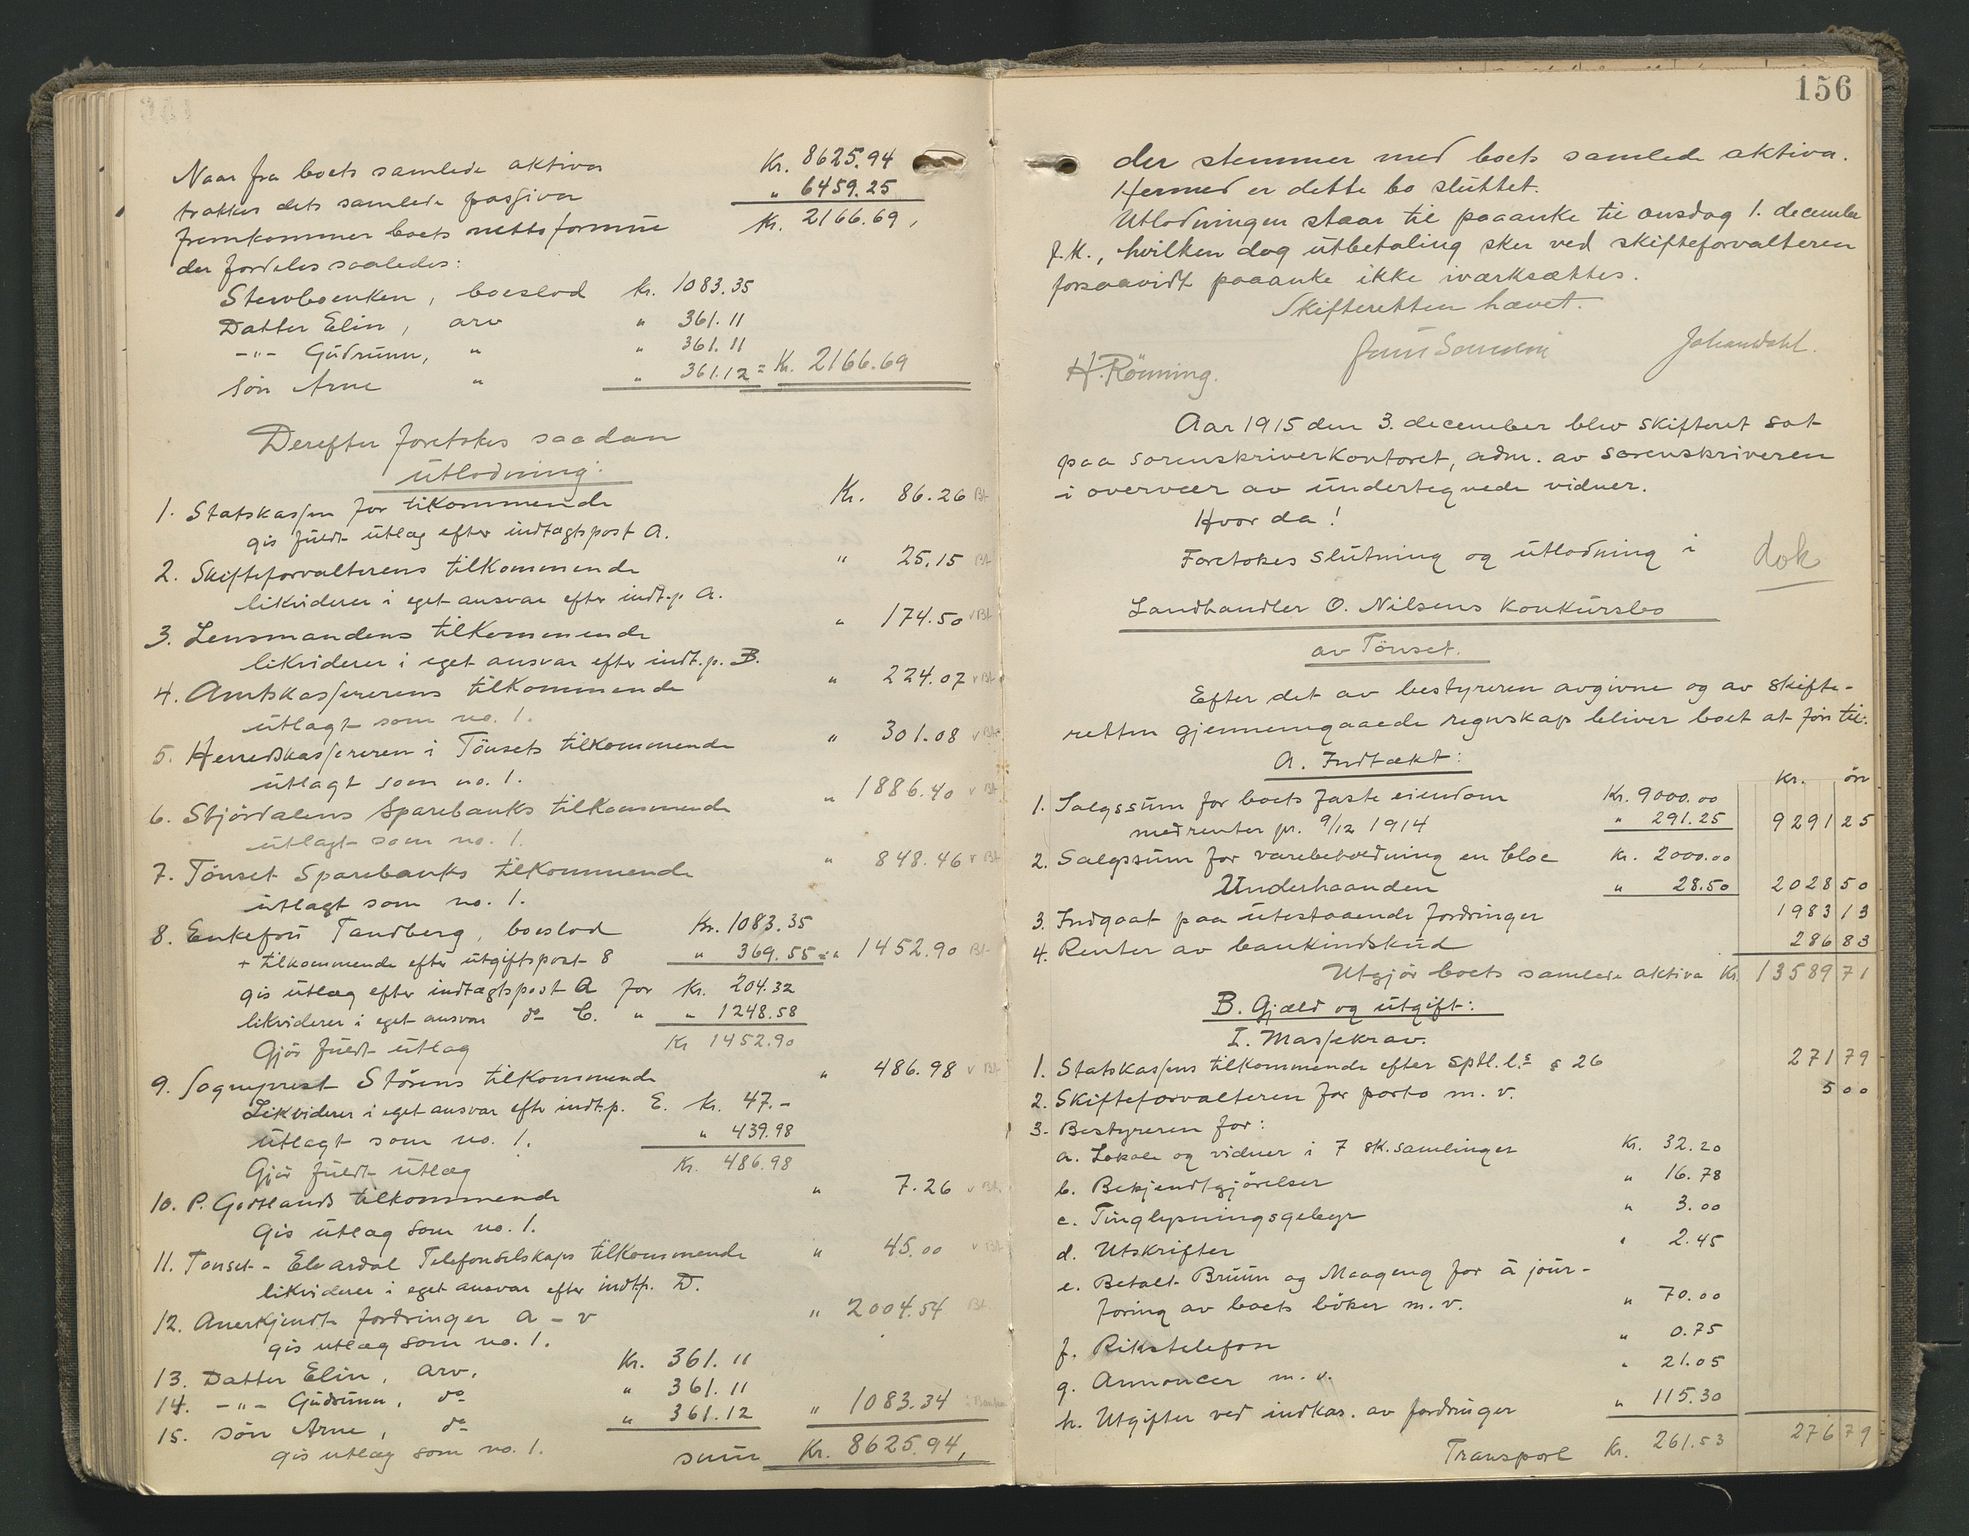 Naar fra boets samlede aktiva Kr. 8625.94
trækkes dets samlede passiva " 6459.25
fremkommer boets nettoformue Kr. 2166.69,
der fordeles saaledes:
Stervboenken, boeslod Kr. 1083.35
Datter Elin, arv " 361.11
-"- Gudrunn, " " 361.11
Søn Arne " " 361.12 = Kr. 2166.69
Derefter foretokes saadan
utlodning:
1. Statskassen for tilkommende Kr. 86.26 Bt
gis fuldt utlæg efter indtægtspost A.
2. Skifteforvalterens tilkommende " 25.15 Bt
likviderer i eget ansvar efter indt.p. A.
3. Lensmandens tilkommende " 174.50 v Bt
likviderer i eget ansvar efter indt.p. B.
4. Amtskassererens tilkommende " 224.07 v Bt
utlagt som no. 1.
5. Herredskassereren i Tönsets tilkommende " 301.08 v Bt
utlagt som no. 1.
6. Stjördalens Sparebanks tilkommende " 1886.40 v Bt
utlagt som no. 1.
7. Tönset Sparebanks tilkommende " 848.46 v Bt
utlagt som no. 1.
8. Enkefru Tandberg, boeslod Kr. 1083.35
+ tilkommende efter utgiftspost 8 " 369.55 = " 1452.90 Bt
gis utlæg efter indtægtspost A for Kr. 204.32
likviderer i eget ansvar do C. " " 1248.58
Gjör fuldt utlæg Kr 1452.90
9. Sogneprest Störens tilkommende " 486.98 v Bt
Likviderer i eget ansvar efter indt.p. E. Kr. 47.-
utlagt som no. 1. " 439.98
Gjör fuldt utlæg Kr. 486.98
10. P. Godtlands tilkommende " 7.26 v Bt
Gis utlæg som no. 1.
11. Tönset - Elvardal Telefonselskaps tilkommende " 45.00 v Bt
likviderer i eget ansvar efter indt.p. D.
12. Anerkjendt fordringer a - v " 2004.54 Bt
gis utlæg som no. 1.
13. Datter Elin, arv, Kr. 361.11
14. -"- Gudrunn, do " 361.11
15. søn Arne, do " 361.12 " 1083.34
gis utlæg som no. 1. sum Kr. 8625.94,
156
der stemmer med boets samlede aktiva.
Hermed er dette bo sluttet.
Utlodningen staar til paaanke til onsdag 1. december
f.k., hvilken dag utbetaling sker ved skifteforvalteren
forsaavidt paaanke ikke iværksættes.
Skifteretten hævet.
H. Rönning. Johan Dahl.
Aar 1915 den 3. december blev skifteret sat
paa sorenskriverkontoret, adm. av sorenskriveren
i overvær av undertegnede vidner.
Hvor da!
Foretokes slutning og utlodning i dok
Landhandler O. Nilsens konkursbo
av Tönset.
Efter det av bestyreren avgivne og av skifte-
retten gjennemgaaede regnskap bliver boet at före til:
A. Indtækt: Kr. öre
1. Salgssum for boets faste eiendom Kr. 9000.00
med renter pr. 9/12 1914 " 291.25 9291 25
2. Salgssum for varebeholdning en bloc Kr. 2000.00
Underhaanden " 28.50 2028 50
3. Indgaat paa utestaaende fordringer 1983 13
4. Renter av bankindskud 286 83
Utgjör boets samlede aktiva Kr. 13589 71
B. Gjæld og utgift:
I. Massekrav.
1. Statskassens tilkommende efter Sptl. l.s § 26 271 79
2. Skifteforvalteren for porto m. v. 5 00
3. Bestyreren for:
a. Lokale og vidner i 7 sk.samlinger Kr. 32.20
b. Bekjendtgjörelser " 16.78
c. Tinglysningsgebyr " 3.00
d. Utskrifter " 2.45
e. Betalt Bruun og Maageng for à jour-
föring av boets böker m. v. " 70.00
f. Rikstelefon " 0.75
g. Annoncer m. v. " 21.05
h. Utgifter ved indkas. av fordringer " 115.30
Transport Kr. 261.53 276 79